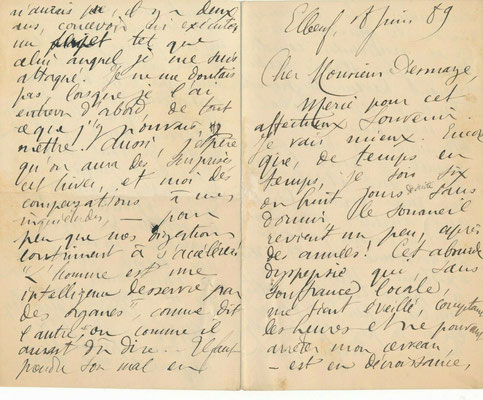 Elbeuf, 18 Juin 89
Cher Monsieur
Merci pour cet
affectueux souvenir.
Je vais mieux. Encore
que, de temps en
temps, je sois six
ou huit jours sans
dormir le sommeil
revient un peu, après
des années! Cet absurde
dyspepsie qui, sans
souffrance locale,
me tient éveillé, comptant
les heures et ne pouvant
arrêter mon cerveau,
- est en décroissance,
n'aurais pu, il y a deux
ans, concevoir ni exécuter
un projet tel que
celui auquel je me suis
attaqué. Je ne me doutais
pas lorsque je l'ai
entrevu d'abord de tout
ce que j'y pouvais
mettre. Aussi j'espère
qu'on aura des surprises
cet hiver, et moi des
compensations à mes
inquiétudes, - pour
peu que mes digestions
continuent à s'accélérer
"L'homme est une
intelligence desservie par
des organes", comme dit
l'autre, ou comme il
aurait dû dire. - Il faut
prendre son mal en